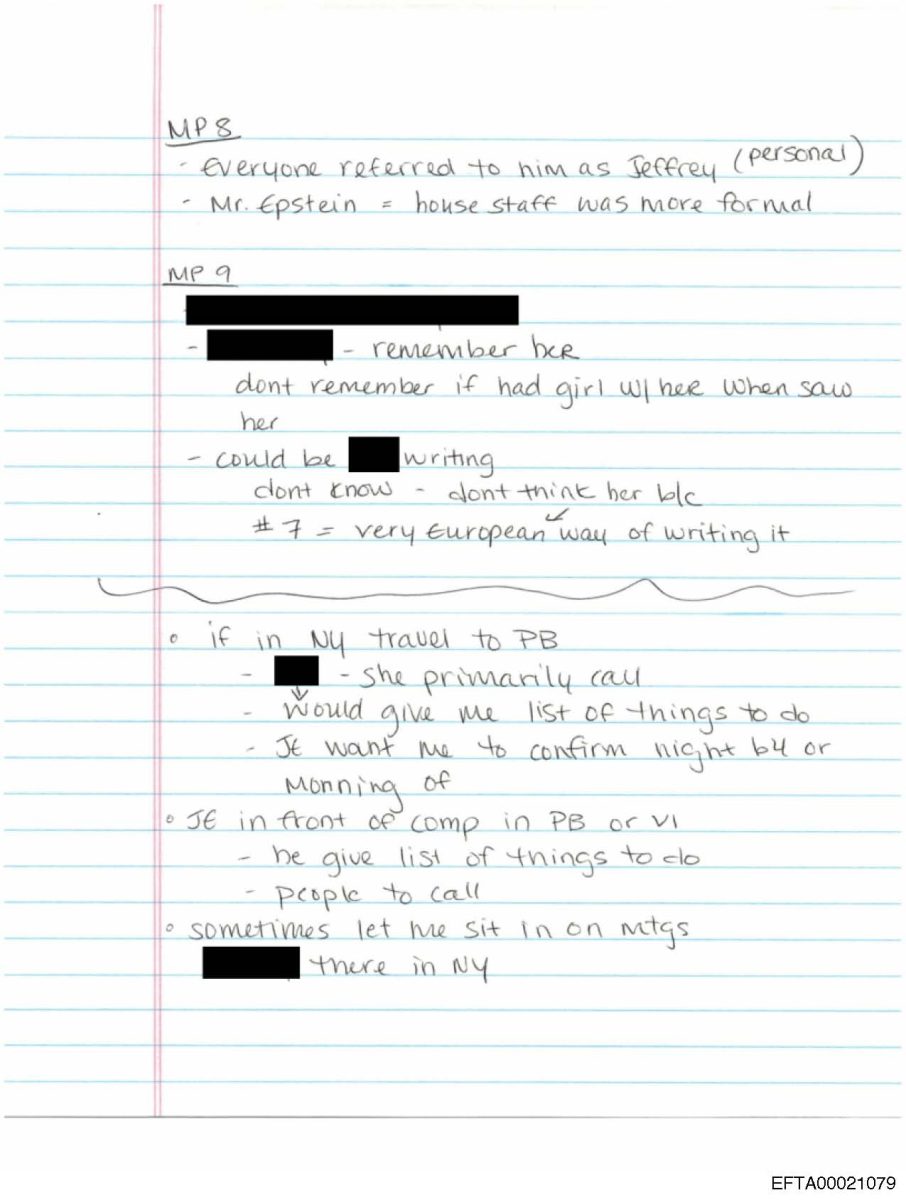 MP 8
- Everyone referred to him as Jeffrey (personal)
- Mr. Epstein = house staff was more formal
MP 9
- remember her
dont remember if had girl w/ her when saw
her
- could be writing
dont know - dont think her b/c
#7 = very European way of writing it
° if in NY travel to PB
- - she primarily call
- would give me list of things to do
- JE want me to confirm night b4 or
Monning of
° JE in front of comp in PB or VI
- he give list of things to do
- people to call
° sometimes let me sit in on mtgs
there in NY
EFTA00021079